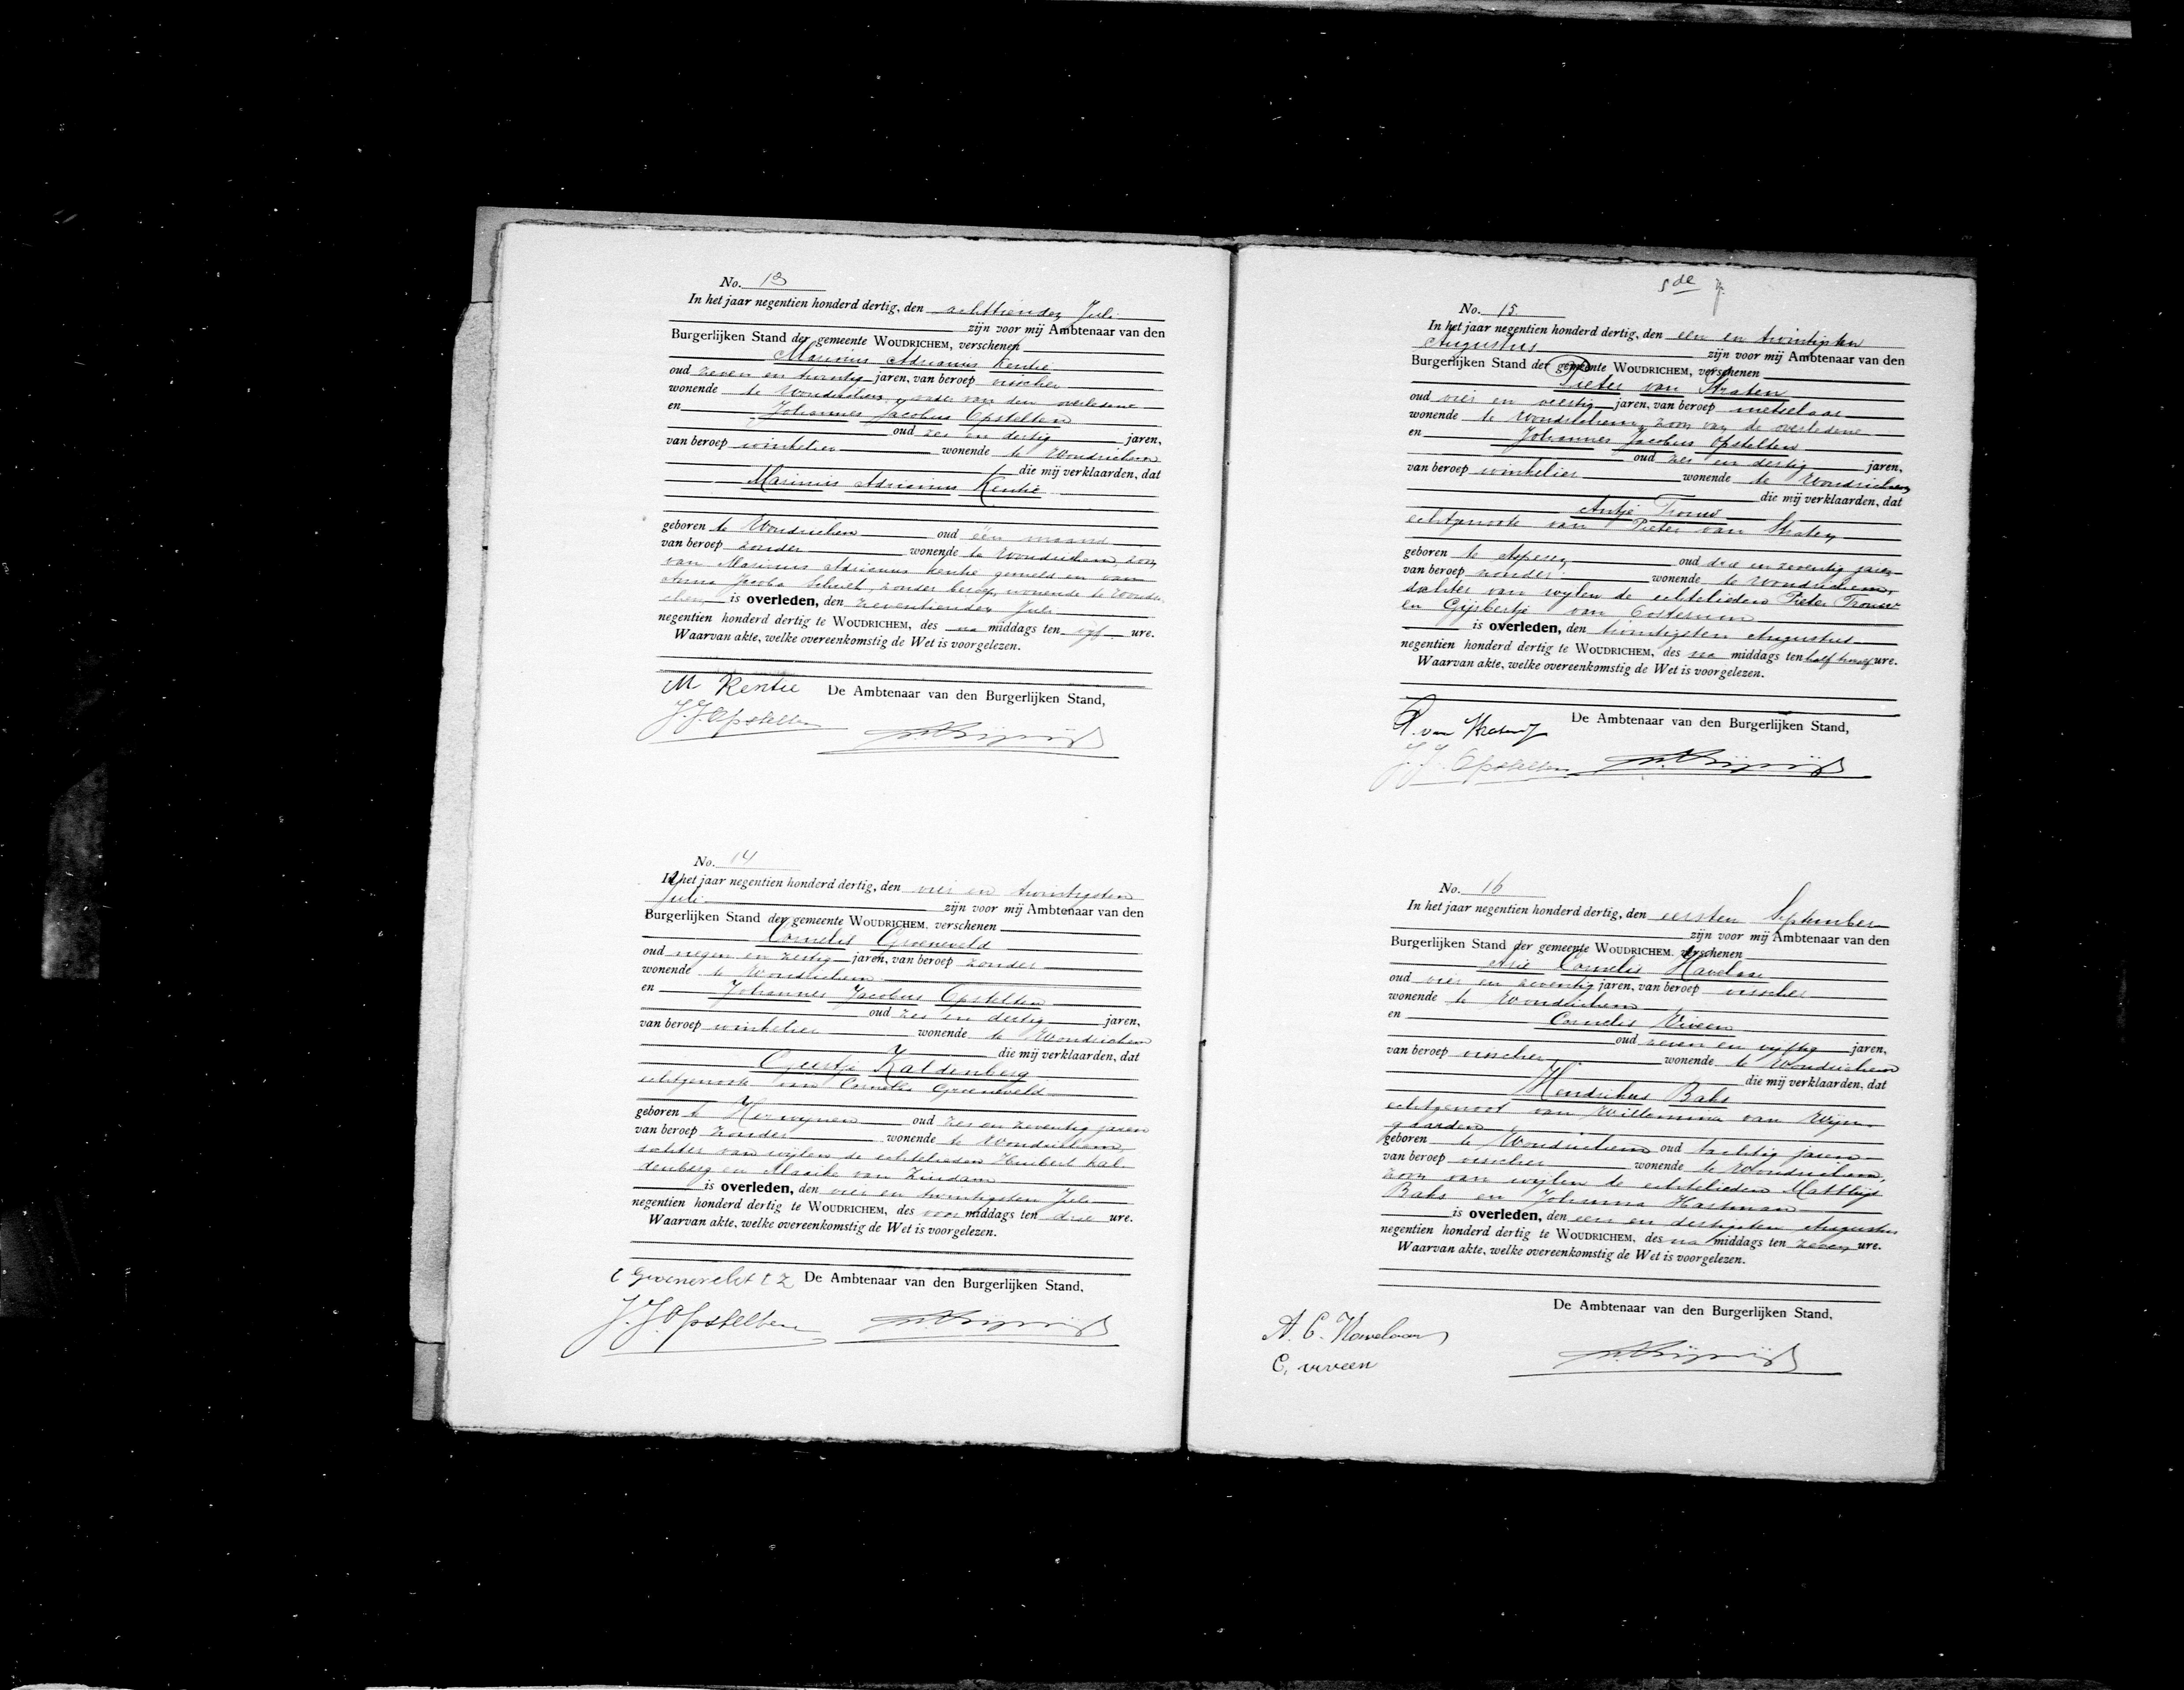 No. 13
In het jaar negentien honderd dertig, den achttienden Juli
zijn voor mij Ambtenaar van den
Burgerlijken Stand der gemeente WOUDRICHEM, verschenen
Marinus Adrianus Kentie
oud zeven en twintig jaren, van beroep visscher
wonende te Woudrichem, vader van den overledene
en Johannes Jacobus Opstelten
oud zes en dertig jaren,
van beroep winkelier wonende te Woudrichem
die mij verklaarden, dat
Marinus Adrianus Kentie
geboren te Woudrichem oud één maand
van beroep zonder wonende te Woudrichem, zoon
van Marinus Adrianus Kentie gemeld en van
Anna Jacoba zonder beroep, wonende te Woudri-
chem is overleden, den zeventienden Juli
negentien honderd dertig te WOUDRICHEM, des na middags ten vijf ure.
Waarvan akte, welke overeenkomstig de Wet is voorgelezen.
M Kentie De Ambtenaar van den Burgerlijken Stand,
J. J. Opstelten
No. 14
In het jaar negentien honderd dertig, den vier en twintigsten
Juli zijn voor mij Ambtenaar van den
Burgerlijken Stand der gemeente WOUDRICHEM, verschenen
Cornelis Groeneveld
oud negen en zestig jaren, van beroep zonder
wonende te Woudrichem
en Johannes Jacobus Opstelten
oud zes en dertig jaren,
van beroep winkelier wonende te Woudrichem
die mij verklaarden, dat
Geertje Kaldenberg
echtgenoote van Cornelis Groeneveld
geboren te Herwijnen oud zes en zeventig jaren
van beroep zonder wonende te Woudrichem,
dochter van wijlen de echtelieden Huibert Kal-
denberg en Maaike van Zeedam
is overleden, den vier en twintigsten Juli
negentien honderd dertig te WOUDRICHEM, des voor middags ten drie ure.
Waarvan akte, welke overeenkomstig de Wet is voorgelezen.
C Groeneveld De Ambtenaar van den Burgerlijken Stand,
J. J. Opstelten
5de
No. 15
In het jaar negentien honderd dertig, den een en twintigsten
Augustus zijn voor mij Ambtenaar van den
Burgerlijken Stand der gemeente WOUDRICHEM, verschenen
Pieter van Straten
oud vier en veertig jaren, van beroep metselaar
wonende te Woudrichem, zoon van de overledene
en Johannes Jacobus Opstelten
oud zes en dertig jaren,
van beroep winkelier wonende te Woudrichem
die mij verklaarden, dat
Antje Trouw
echtgenoote van Pieter van Straten
geboren te Asperen oud drie en zeventig jaren
van beroep zonder wonende te Woudrichem,
dochter van wijlen de echtelieden Pieter Trouw
en Gijsbertje van Oosterum
is overleden, den twintigsten Augustus
negentien honderd dertig te WOUDRICHEM, des na middags ten half twaalf ure.
Waarvan akte, welke overeenkomstig de Wet is voorgelezen.
P. van Straten De Ambtenaar van den Burgerlijken Stand,
J. J. Opstelten
No. 16
In het jaar negentien honderd dertig, den eersten September
zijn voor mij Ambtenaar van den
Burgerlijken Stand der gemeente WOUDRICHEM, verschenen
Arie Cornelis Havelaar
oud vier en zeventig jaren, van beroep visscher
wonende te Woudrichem
en Cornelis Viveen
oud zeven en vijftig jaren,
van beroep visscher wonende te Woudrichem
die mij verklaarden, dat
Hendrikus Baks
echtgenoot van Willemina van Wijn-
gaarden
geboren te Woudrichem oud tachtig jaren
van beroep visscher wonende te Woudrichem,
zoon van wijlen de echtelieden Matthijs
Baks en Johanna Hartman
is overleden, den een en dertigsten Augustus
negentien honderd dertig te WOUDRICHEM, des na middags ten zeven ure.
Waarvan akte, welke overeenkomstig de Wet is voorgelezen.
De Ambtenaar van den Burgerlijken Stand,
A. C. Havelaar
C. viveen